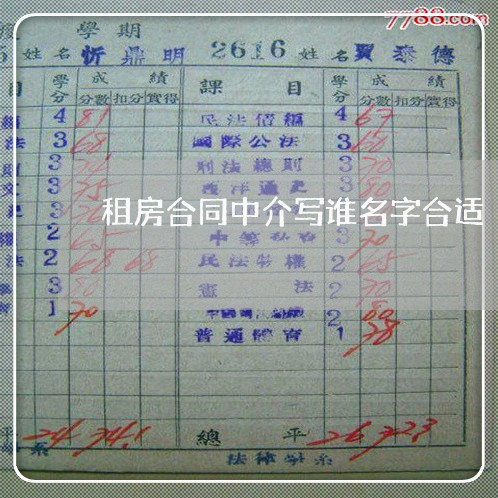 7788.com
學期
姓名 忻鼎明 2616 姓名 賈泰德
目 學分 成績 課目 學分 成績
分數 扣分 實得 分數 扣分 實得
4 81 民法債編 4 67
法 3 68 國際公法 3 60
3 刑法總則 3 70
3 75 西洋通史 3 80
租房合同中介写谁名字合适
2 65 3 70
法 2 68 68 民法物權 2 65
3 80 憲法 2 70
1 70 2 80
普通體育 1 78
平 24 74.1 總平 26 72.3
系 法律學系